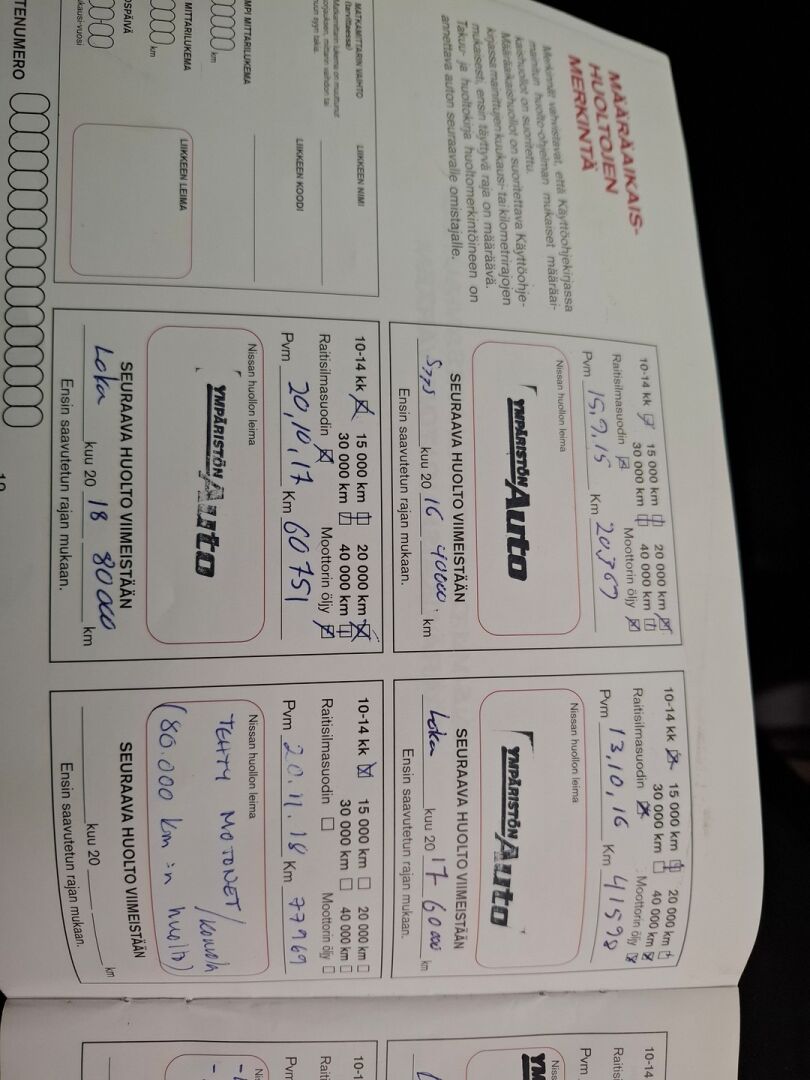 MÄÄRÄAIKAIS-
HUOLTOJEN
MERKINTÄ
Merkinnät vahvistavat, että Käyttöohjekirjassa
mainitun huolto-ohjelman mukaiset määräai-
kaishuollot on suoritettu.
Määräaikaishuollot on suoritettava Käyttöohje-
kirjassa mainittujen kuukausi- tai kilometrirajojen
mukaisesti, ensin täyttyvä raja on määräävä.
Takuu- ja huoltokirja huoltomerkintöineen on
annettava auton seuraavalle omistajalle.
MATKAMITTARIN VAIHTO
(tarvittaessa)
Matkamittarin lukema on muuttunut
korjauksen, mittarin vaihdon tai
muun syyn takia.
MPI MITTARILUKEMA
km
MITTARILUKEMA
km
OSPÄIVÄ
kausi-vuosi
LIIKKEEN NIMI
LIIKKEEN KOODI
LIIKKEEN LEIMA
TENUMERO
10-14 kk 15 000 km 20 000 km
30 000 km 40 000 km
Raitisilmasuodin Moottorin öljy
Pvm 15,9,15 Km 20369
Nissan huollon leima
YMPÄRISTÖN Auto
SEURAAVA HUOLTO VIIMEISTÄÄN
Syys kuu 20 16 40000 km
Ensin saavutetun rajan mukaan.
10-14 kk 15 000 km 20 000 km
30 000 km 40 000 km
Raitisilmasuodin Moottorin öljy
Pvm 13,10,16 Km 41598
Nissan huollon leima
YMPÄRISTÖN Auto
SEURAAVA HUOLTO VIIMEISTÄÄN
Loka kuu 20 17 60000 km
Ensin saavutetun rajan mukaan.
10-14 kk 15 000 km 20 000 km
30 000 km 40 000 km
Raitisilmasuodin Moottorin öljy
Pvm 20,10,17 Km 60751
Nissan huollon leima
YMPÄRISTÖN Auto
SEURAAVA HUOLTO VIIMEISTÄÄN
Loka kuu 20 18 80000 km
Ensin saavutetun rajan mukaan.
10-14 kk 15 000 km 20 000 km
30 000 km 40 000 km
Raitisilmasuodin Moottorin öljy
Pvm 20.11.18 Km 77969
Nissan huollon leima
TEHTY MOTONET/
(80.000 km:n huolto)
SEURAAVA HUOLTO VIIMEISTÄÄN
kuu 20 km
Ensin saavutetun rajan mukaan.
10-14
Raitis
Pvm
Niss
YM
10-1
Raiti
Pvm